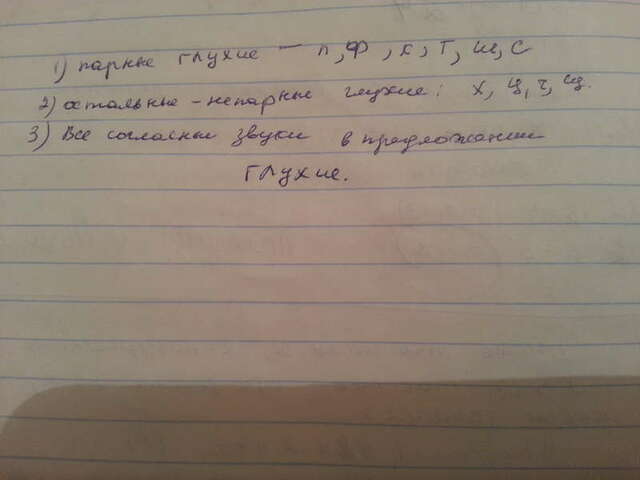 1) парные глухие — п, ф, к, т, ш, с
2) остальные - непарные глухие: х, ц, ч, щ.
3) Все согласные звуки в предложении
глухие.